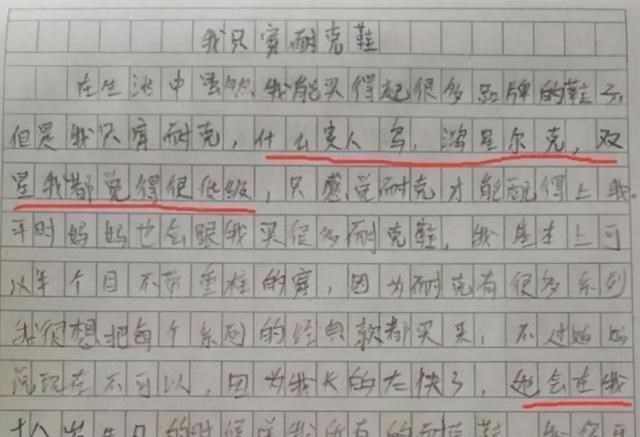 我只穿耐克鞋
在生活中虽然我能买得起很多品牌的鞋子,
但是我只穿耐克,什么美人鸟,鸿星尔克,双
星我都觉得很低级,只感觉耐克才能配得上我。
平时妈妈也会跟我买很多耐克鞋,我基本上可
以半个月不带重样的穿,因为耐克有很多系列
我很想把每个系列的经典款都买来,不过妈妈
说现在不可以,因为我长的太快了,她会在我
十八岁生日的时候